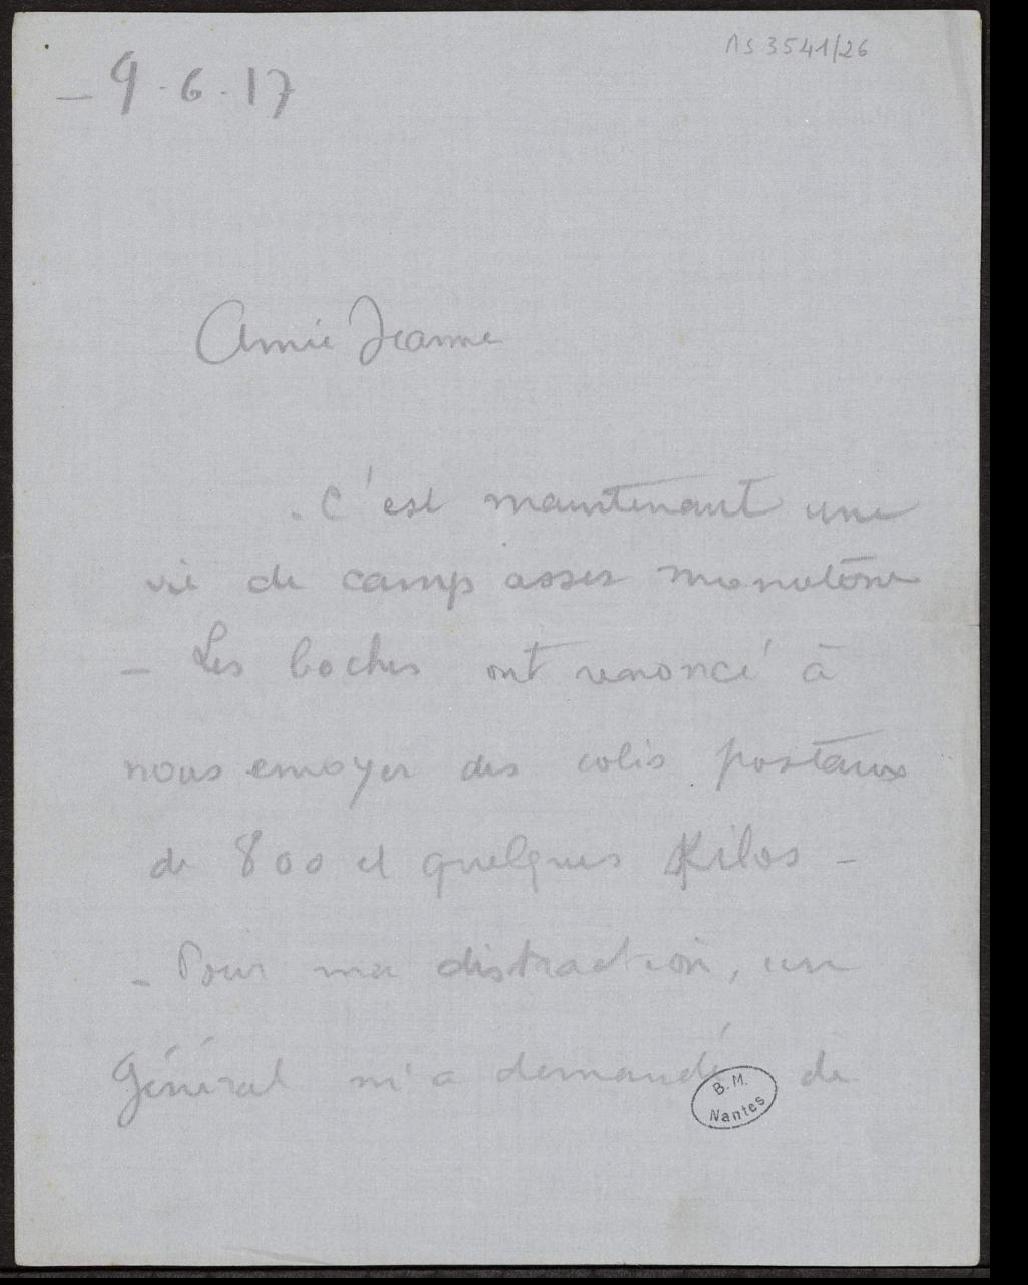 Ms 3541/26
- 9.6.17
Amie Jeanne
. C'est maintenant une
vie de camp assez monotone
- Les boches ont renoncé à
nous envoyer des colis postaux
de 800 et quelques Kilos -
- Pour ma distraction, un
Général m'a demandé de
B. M.
Nantes